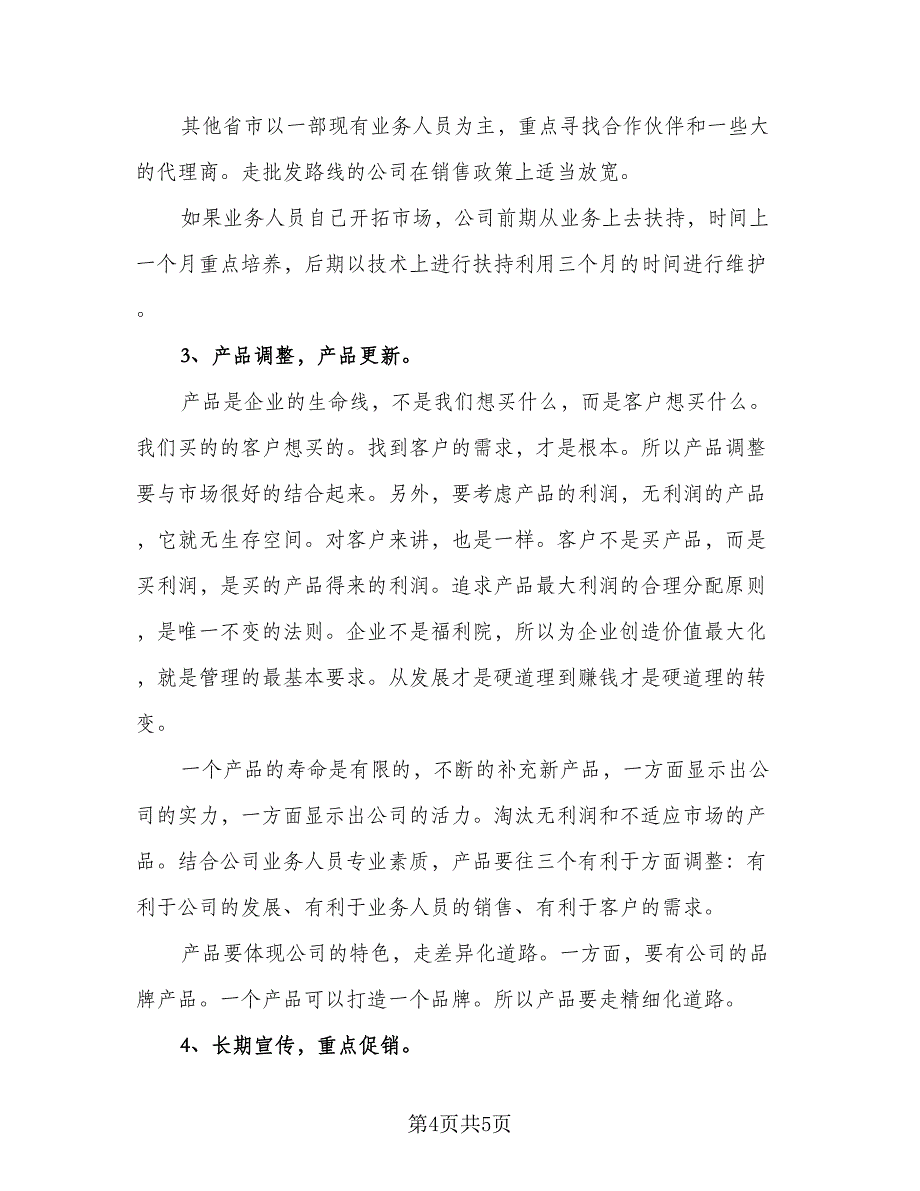 其他省市以一部现有业务人员为主，重点寻找合作伙伴和一些大
的代理商。走批发路线的公司在销售政策上适当放宽。
如果业务人员自己开拓市场，公司前期从业务上去扶持，时间上
一个月重点培养，后期以技术上进行扶持利用三个月的时间进行维护
。
3、产品调整，产品更新。
产品是企业的生命线，不是我们想买什么，而是客户想买什么。
我们买的的客户想买的。找到客户的需求，才是根本。所以产品调整
要与市场很好的结合起来。另外，要考虑产品的利润，无利润的产品
，它就无生存空间。对客户来讲，也是一样。客户不是买产品，而是
买利润，是买的产品得来的利润。追求产品最大利润的合理分配原则
，是唯一不变的法则。企业不是福利院，所以为企业创造价值最大化
，就是管理的最基本要求。从发展才是硬道理到赚钱才是硬道理的转
变。
一个产品的寿命是有限的，不断的补充新产品，一方面显示出公
司的实力，一方面显示出公司的活力。淘汰无利润和不适应市场的产
品。结合公司业务人员专业素质，产品要往三个有利于方面调整：有
利于公司的发展、有利于业务人员的销售、有利于客户的需求。
产品要体现公司的特色，走差异化道路。一方面，要有公司的品
牌产品。一个产品可以打造一个品牌。所以产品要走精细化道路。
4、长期宣传，重点促销。
第4页共5页